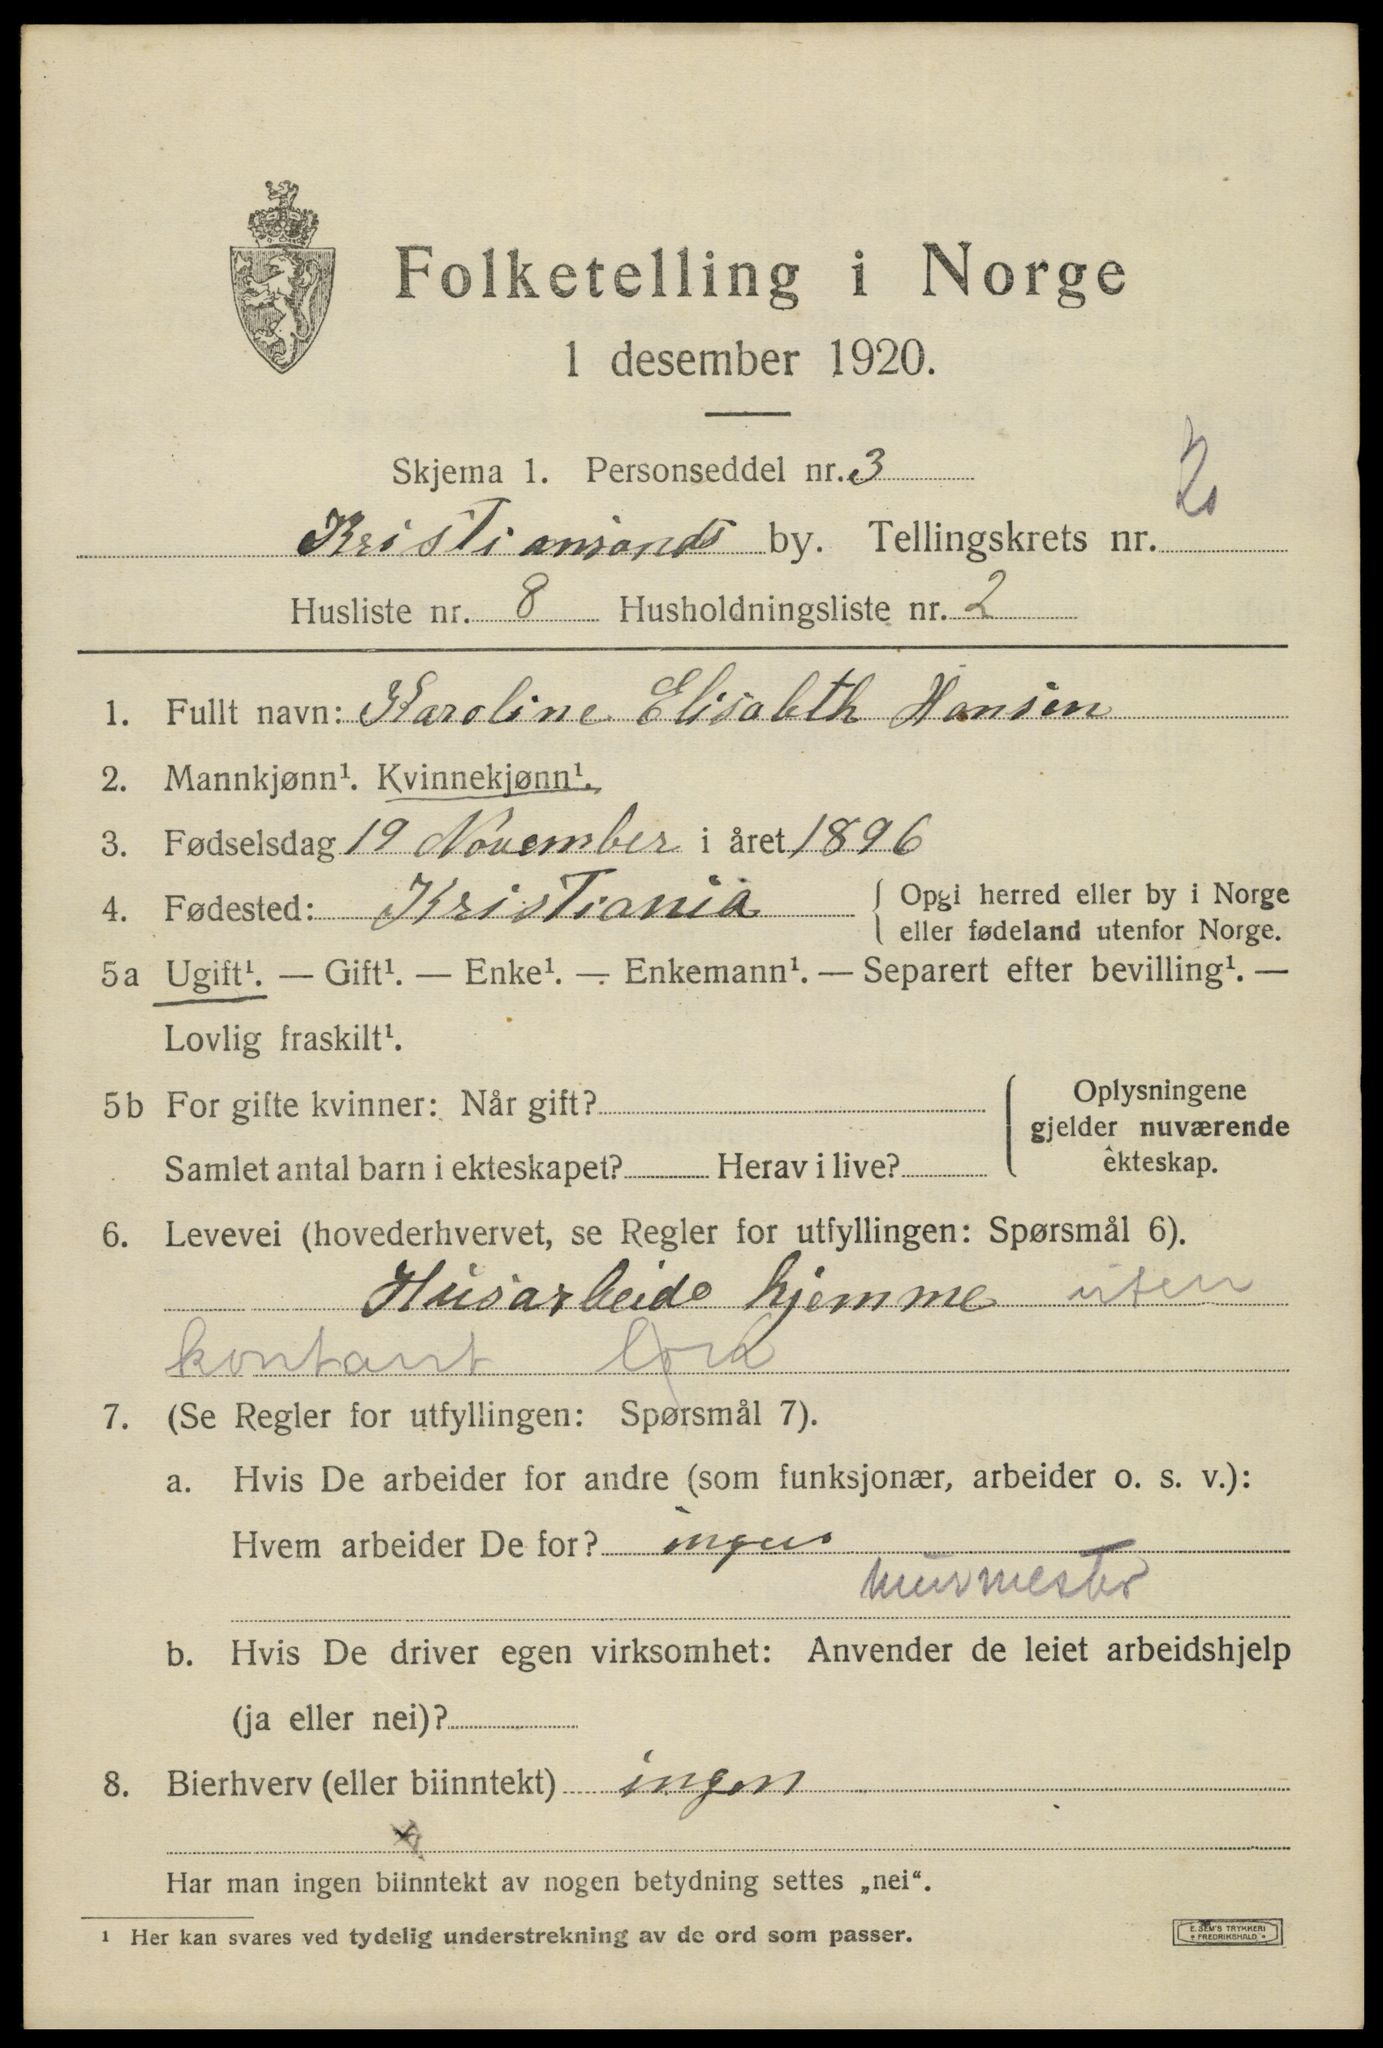 Folketelling i Norge
1 desember 1920.
Skjema 1. Personseddel nr. 3
Kristiansands by. Tellingskrets nr. 2
Husliste nr. 8 Husholdningsliste nr. 2
1. Fullt navn: Karoline Elisabeth Hansen
2. Mannkjønn¹. Kvinnekjønn¹.
3. Fødselsdag 19 November i året 1896
4. Fødested: Kristiania { Opgi herred eller by i Norge
eller fødeland utenfor Norge.
5a Ugift¹. — Gift¹. — Enke¹. — Enkemann¹. — Separert efter bevilling¹. —
Lovlig fraskilt¹.
5b For gifte kvinner: Når gift?
Samlet antal barn i ekteskapet? Herav i live?
{ Oplysningene
gjelder nuværende
ekteskap.
6. Levevei (hovederhvervet, se Regler for utfyllingen: Spørsmål 6).
Husarbeide hjemme uten
kontant løn
7. (Se Regler for utfyllingen: Spørsmål 7).
a. Hvis De arbeider for andre (som funksjonær, arbeider o. s. v.):
Hvem arbeider De for? ingen
murmester
b. Hvis De driver egen virksomhet: Anvender de leiet arbeidshjelp
(ja eller nei)?
8. Bierhverv (eller biinntekt) ingen
Har man ingen biinntekt av nogen betydning settes „nei“.
¹ Her kan svares ved tydelig understrekning av de ord som passer.
E. SEM'S TRYKKERI
FREDRIKSHALD